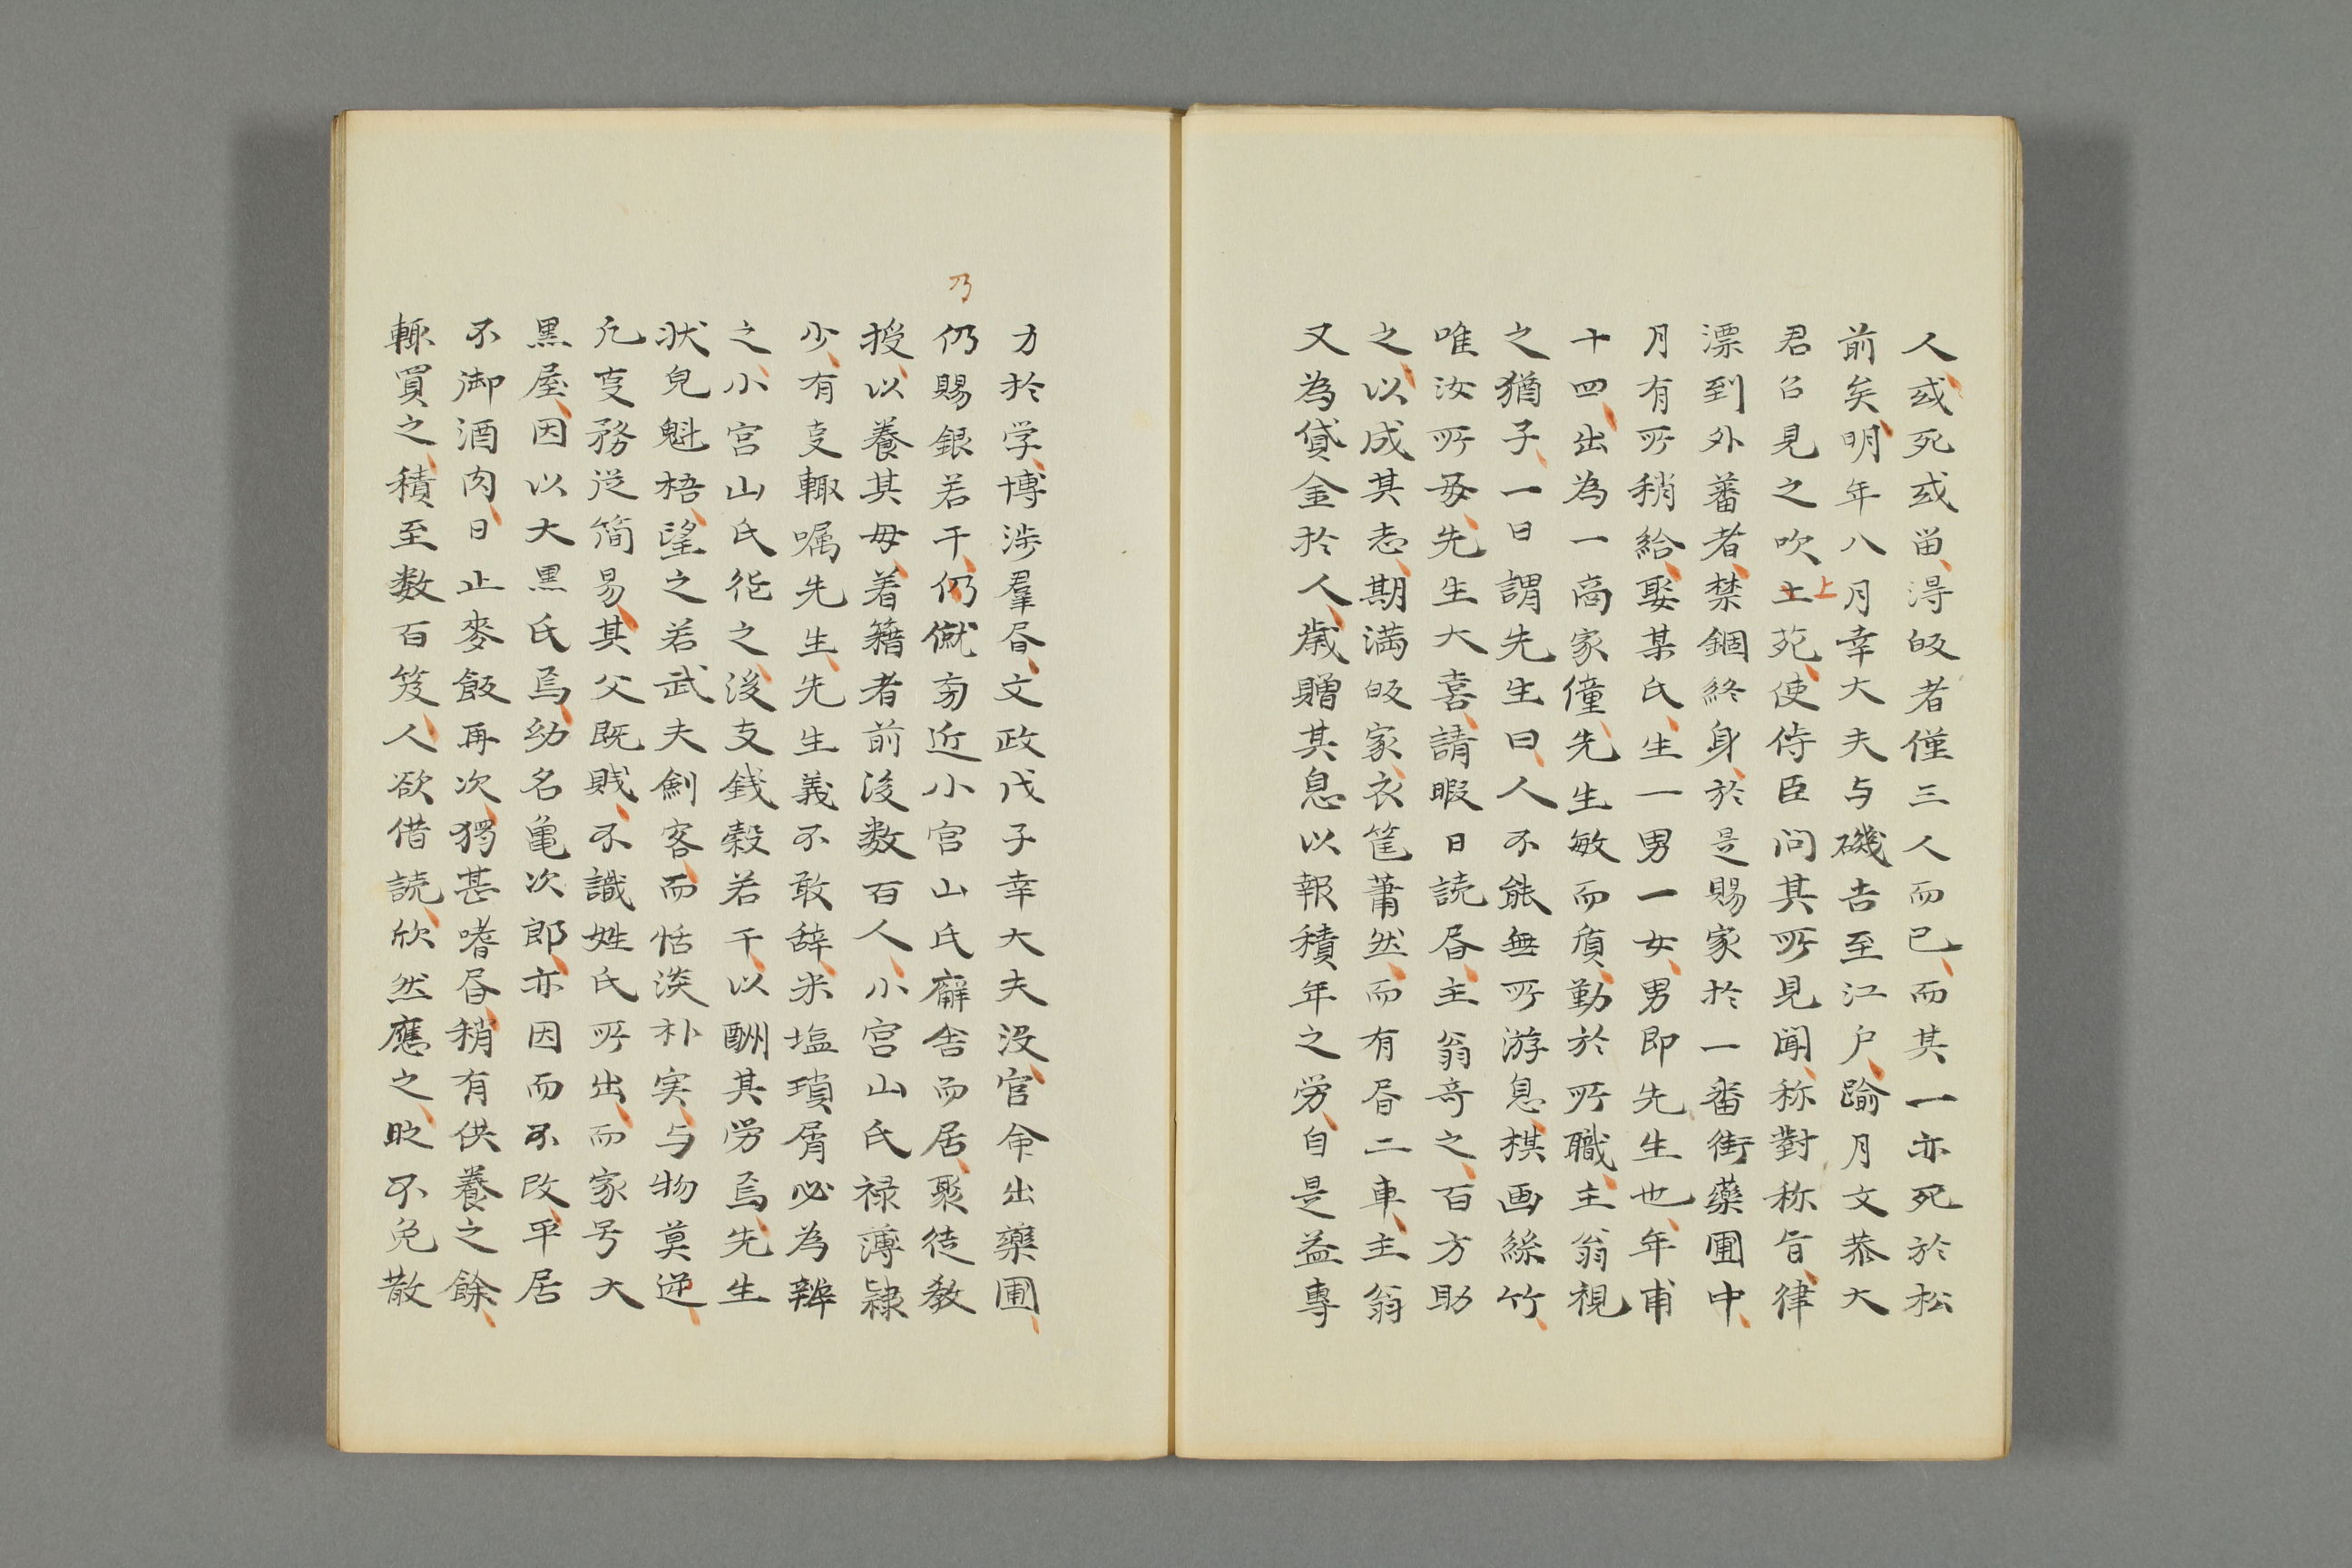 人或死或畄得皈者僅三人而已而其一亦死於松
前矣明年八月幸大夫与磯吉至江户踰月文恭大
君召見之吹土苑使侍臣问其所見闻称對称旨律
上
漂到外蕃者禁錮終身於是賜家於一番街藥圃中
月有所稍給娶某氏生一男一女男即先生也年甫
十四出為一商家僮先生敏而質勤於所職主翁視
之猶子一日謂先生曰人不能無所游息棋画絲竹
唯汝所好先生大喜請暇日読昼主翁奇之百方助
之以成其志期満皈家衣筐蕭然而有昼二車主翁
又為貸金於人歳贈其息以報積年之労自是益專
力於学博渉羣昼文政戊子幸大夫没官命出藥圃
乃
仍賜銀若干仍僦旁近小宮山氏廨舎而居聚徒教
授以養其母着籍者前後数百人小宮山氏禄薄隷
少有叓輙嘱先生先生義不敢辞米塩瑣屑必為辨
之小宮山氏徙之後支錢穀若干以酬其労焉先生
状皃魁梧望之若武夫劍客而恬淡朴実与物莫逆
凢叓務従简易其父既賎不識姓氏所出而家号大
黒屋因以大黒氏焉幼名亀次郎亦因而不改平居
不御酒肉日止麥飯再次獨甚嗜昼稍有供養之餘
輙買之積至数百笈人欲借読欣然應之眂不免散